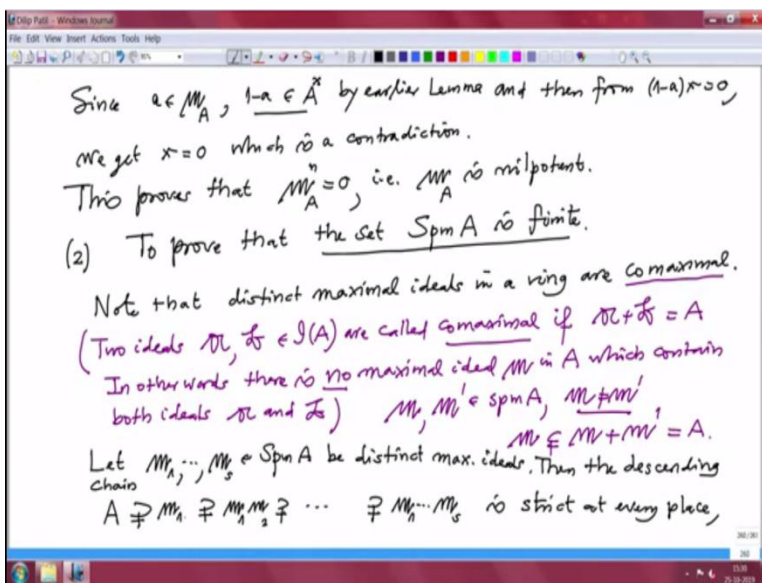 Dilip Patil - Windows Journal
File Edit View Insert Actions Tools Help
Since a ∈ 𝔪_A, 1-a ∈ A^× by earlier Lemma and then from (1-a)x=0,
we get x=0 which is a contradiction.
This proves that 𝔪_A^n=0, i.e. 𝔪_A is nilpotent.
(2) To prove that the set Spm A is finite.
Note that distinct maximal ideals in a ring are comaximal.
(Two ideals 𝔞, 𝔟 ∈ I(A) are called comaximal if 𝔞+𝔟 = A
In other words there is no maximal ideal 𝔪 in A which contain
both ideals 𝔞 and 𝔟) 𝔪, 𝔪' ∈ Spm A, 𝔪≠𝔪'
𝔪 ⊊ 𝔪+𝔪' = A.
Let 𝔪_1, ..., 𝔪_s ∈ Spm A be distinct max. ideals. Then the descending
chain
A ⊋ 𝔪_1 ⊋ 𝔪_1𝔪_2 ⊋ ... ⊋ 𝔪_1...𝔪_s is strict at every place,
260
15:30
25-10-2019